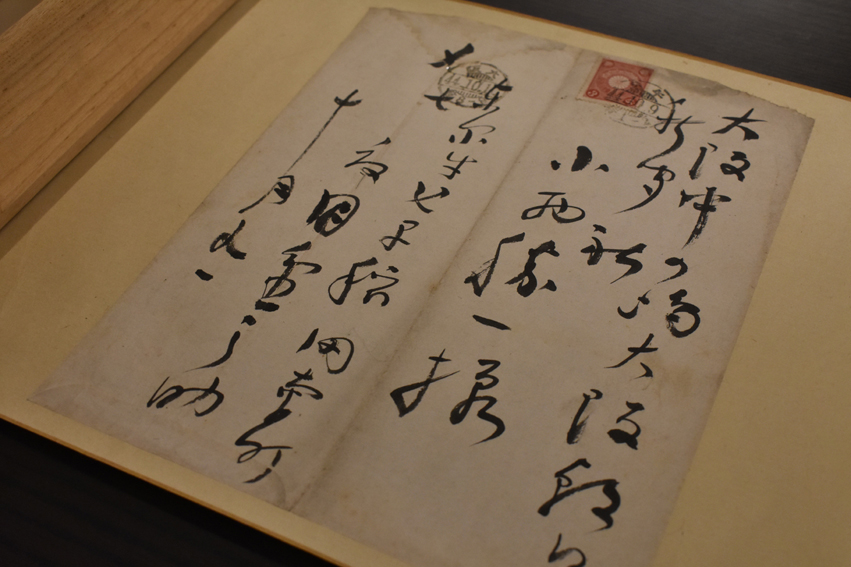 大阪中の嶋大阪朝日
新聞社
小西勝一様
東京牛込早稲田南町
夏目金之助
十月九日